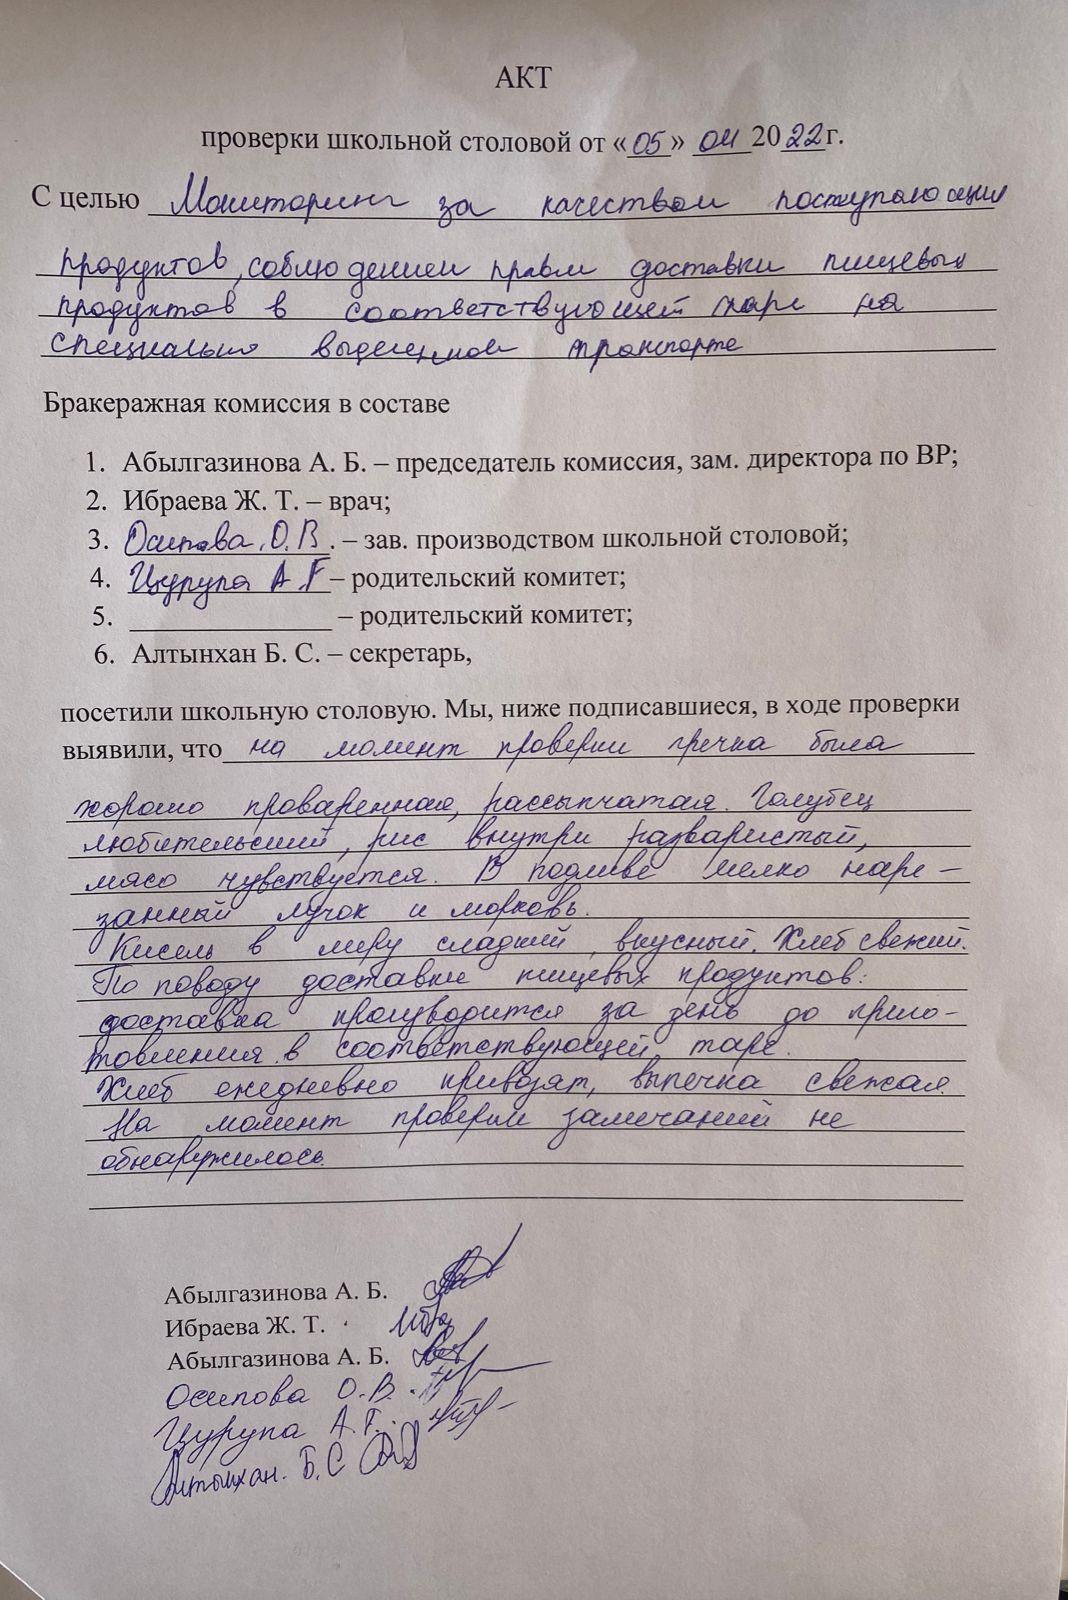 АКТ
проверки школьной столовой от «05» 04 2022г.
С целью Мониторинг за качеством поступающих
продуктов, соблюдением правил доставки пищевых
продуктов в соответствующей таре на
специально выделенном транспорте
Бракеражная комиссия в составе
1. Абылгазинова А. Б. – председатель комиссия, зам. директора по ВР;
2. Ибраева Ж. Т. – врач;
3. Осипова О.В. – зав. производством школьной столовой;
4. Цурупа А.Г – родительский комитет;
5. ______________ – родительский комитет;
6. Алтынхан Б. С. – секретарь,
посетили школьную столовую. Мы, ниже подписавшиеся, в ходе проверки
выявили, что на момент проверки гречка была
хорошо проваренная, рассыпчатая. Голубец
любительский, рис внутри разваристый,
мясо чувствуется. В подливе мелко наре-
занный лучок и морковь.
Кисель в меру сладкий, вкусный. Хлеб свежий.
По поводу доставки пищевых продуктов:
доставка производится за день до приго-
товления в соответствующей таре.
Хлеб ежедневно привозят, выпечка свежая.
На момент проверки замечаний не
обнаружилось.
Абылгазинова А. Б.
Ибраева Ж. Т.
Абылгазинова А. Б.
Осипова О.В.
Цурупа А.Г.
Алтынхан. Б.С